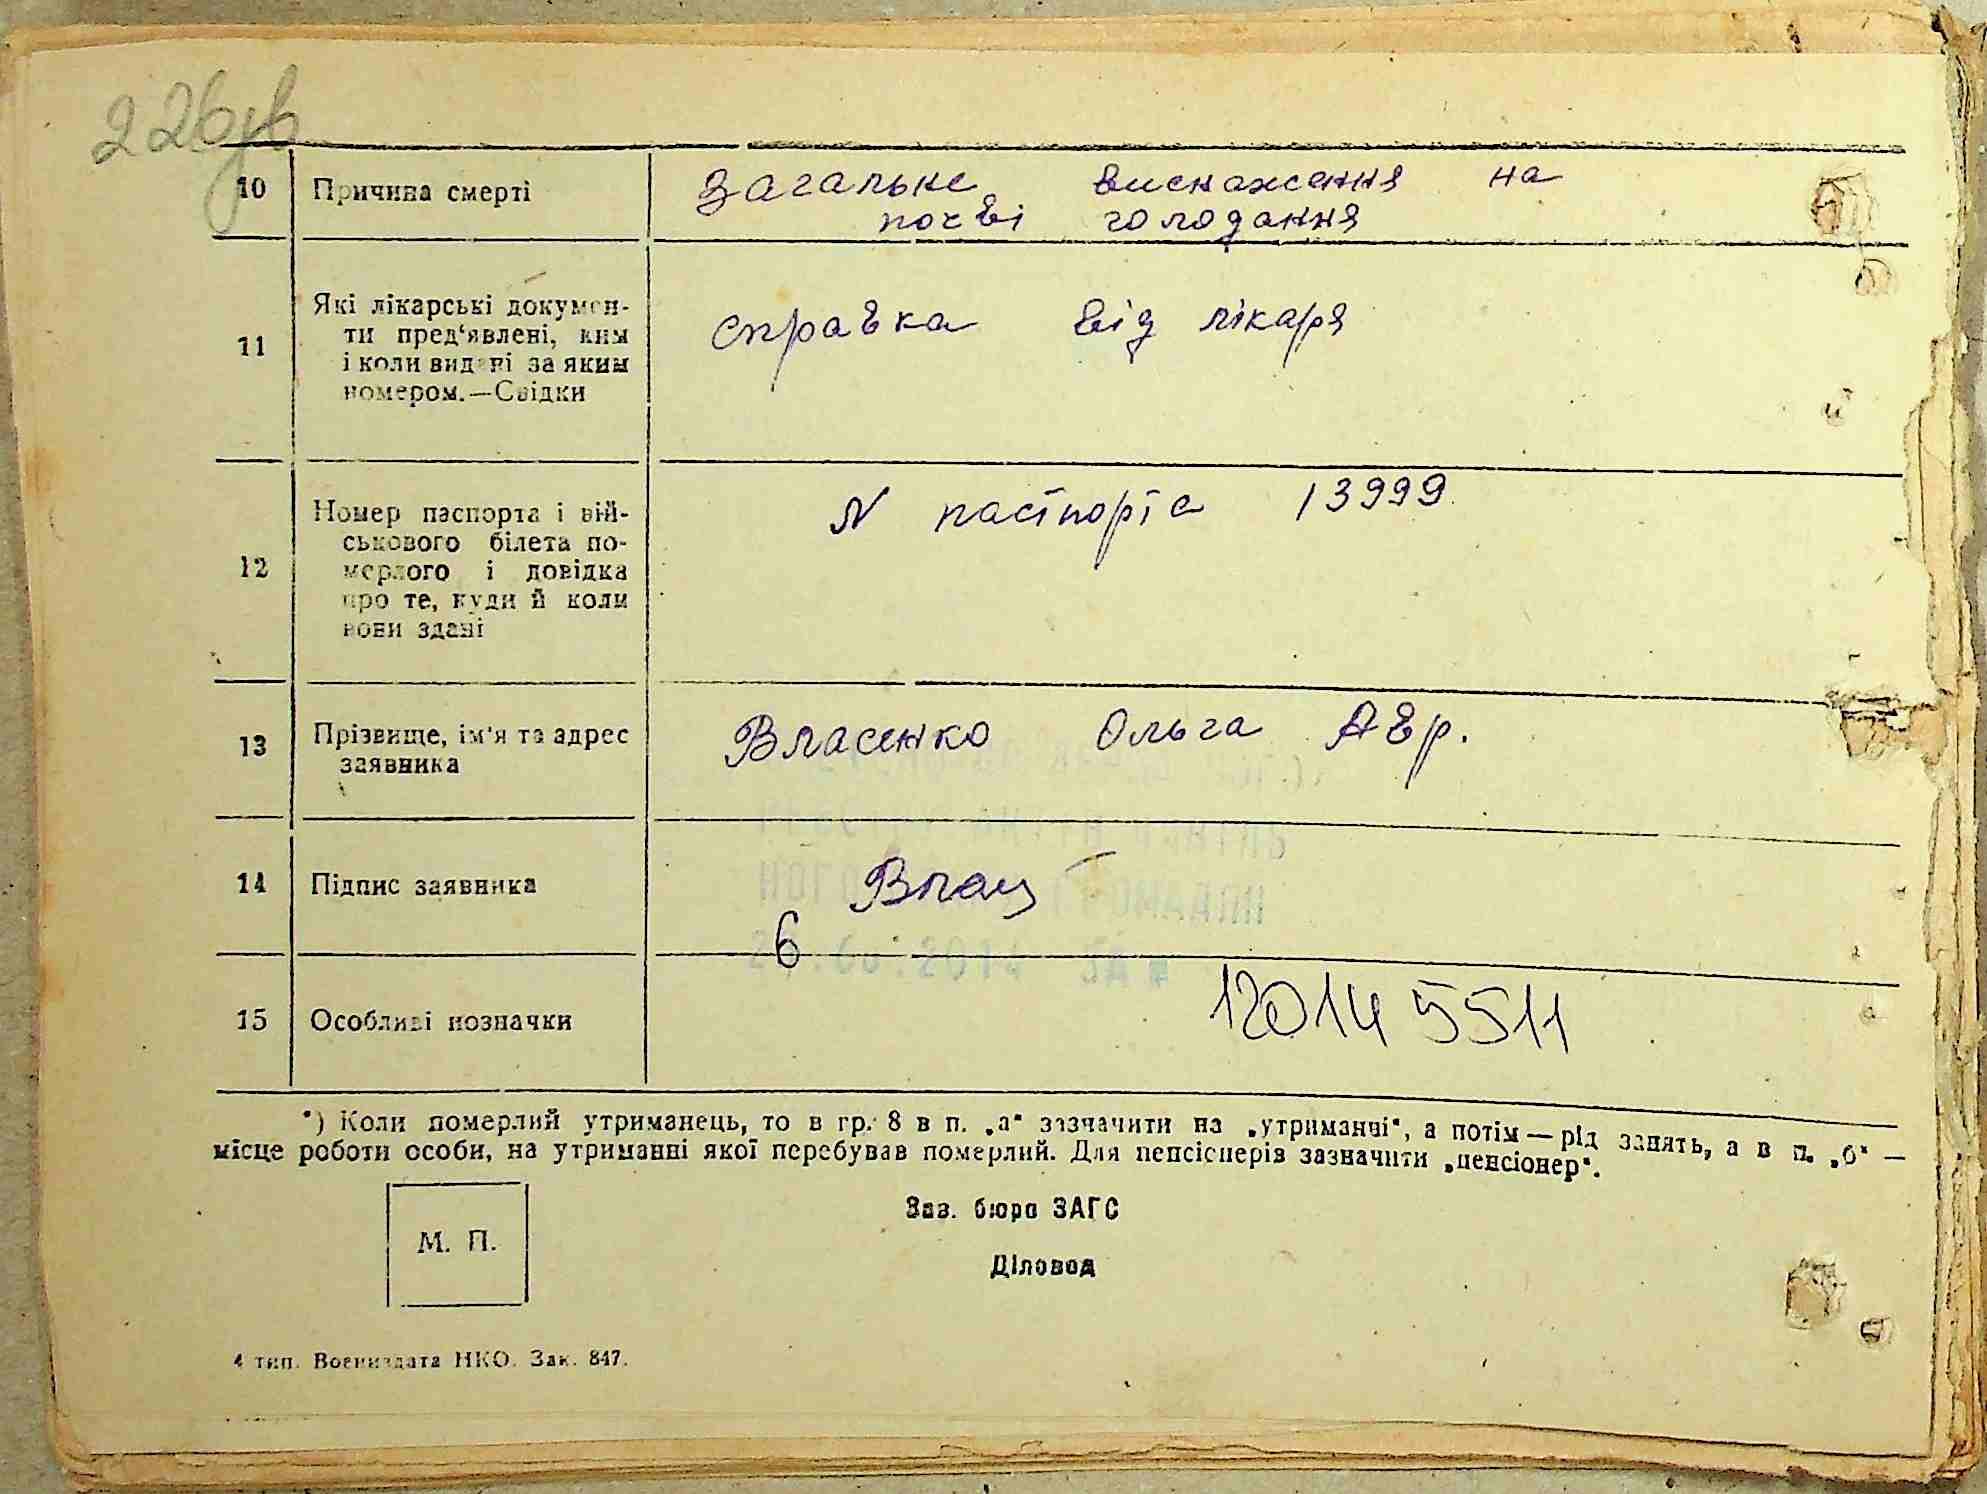 226зв
10 Причина смерті Загальне виснаження на
почві голодання
11 Які лікарські докумен-
ти пред‘явлені, ким
і коли видані за яким
номером.—Свідки
справка від лікаря
12 Номер паспорта і вій-
ськового білета по-
мерлого і довідка
про те, куди й коли
вони здані
N паспорта 13999
13 Прізвище, ім‘я та адрес
заявника
Власенко Ольга Авр.
14 Підпис заявника
6
15 Особливі позначки 12014 5511
*) Коли померлий утриманець, то в гр. 8 в п. „а“ зазначити на „утриманчі“, а потім—рід занять, а в п. „б“ —
місце роботи особи, на утриманні якої перебував померлий. Для пенсіонерів зазначити „пенсіонер“.
М. П.
Зав. бюро ЗАГС
Діловод
4 тип. Воениздата НКО. Зак. 847.